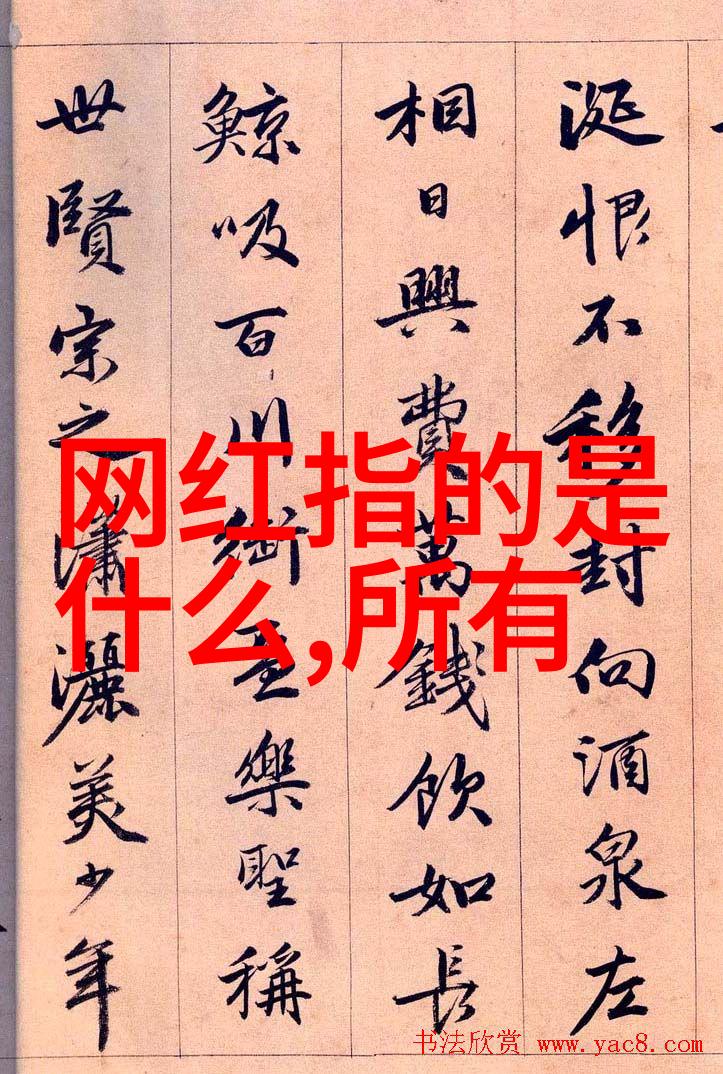 涎恨不移封向酒泉左
相日興費萬錢飲如長
鯨吸百川銜盃樂聖稱
世賢宗之瀟灑美少年
网红指的是
什么,所有
书法欣赏 www.yac8.com